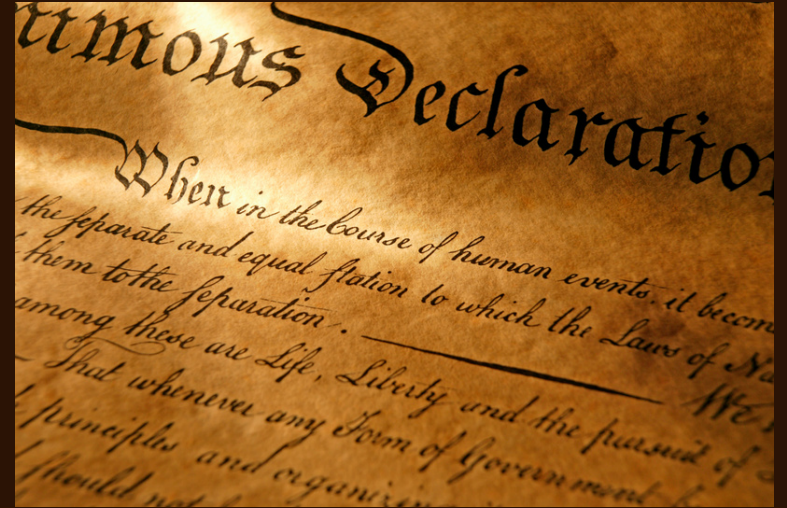 nimous Declaration
When in the Course of human events, it becom
the separate and equal station to which the Laws of Na
them to the separation. — We
among these are Life, Liberty and the pursuit of
— That whenever any Form of Government b
principles and organizin
should not